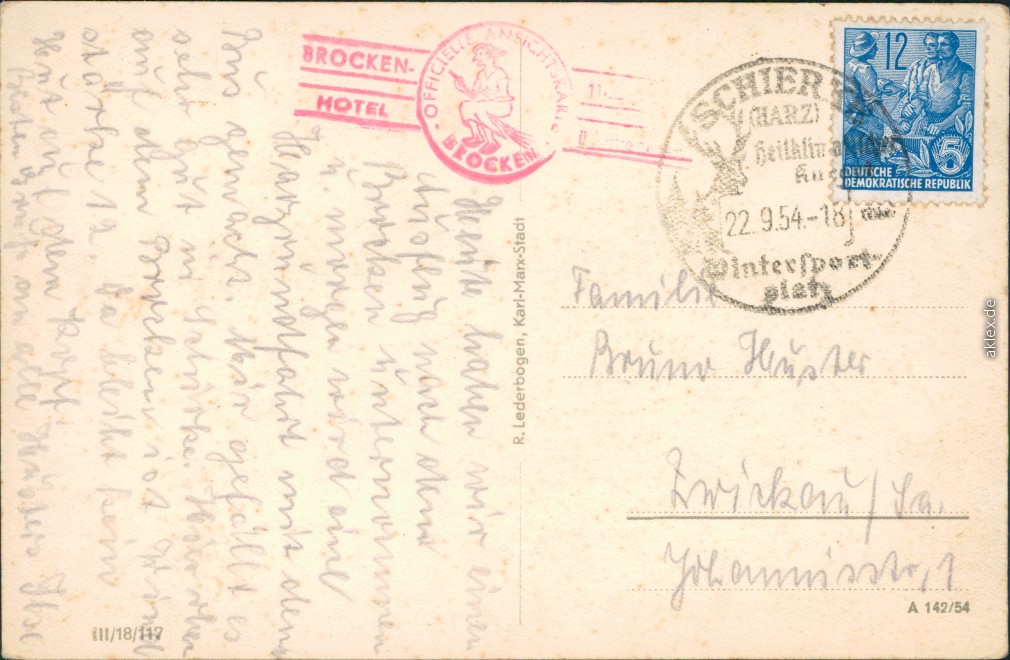 BROCKEN-
HOTEL
OFFICIELLE ANSICHTSKARTE
BROCKEN
SCHIERKE
(HARZ)
Heilklimatischer
Kurort
22.9.54.-18
Wintersport-
platz
12
5
DEUTSCHE
DEMOKRATISCHE REPUBLIK
Heute haben wir einen
Ausflug nach dem
Brocken unternommen
u. morgen wird eine
Harzrundfahrt mit dem
Bus gemacht. Mir gefällt es
sehr gut in Schierke. Hier oben
auf dem Brocken ist Wind
stärke 12. Da bleibt kein
Hut auf dem Kopf.
an alle Husters
R. Lederbogen, Karl-Marx-Stadt
Familie
Bruno Huster
Zwickau/Sa.
Johannisstr. 1
A 142/54
III/18/117
aklex.de